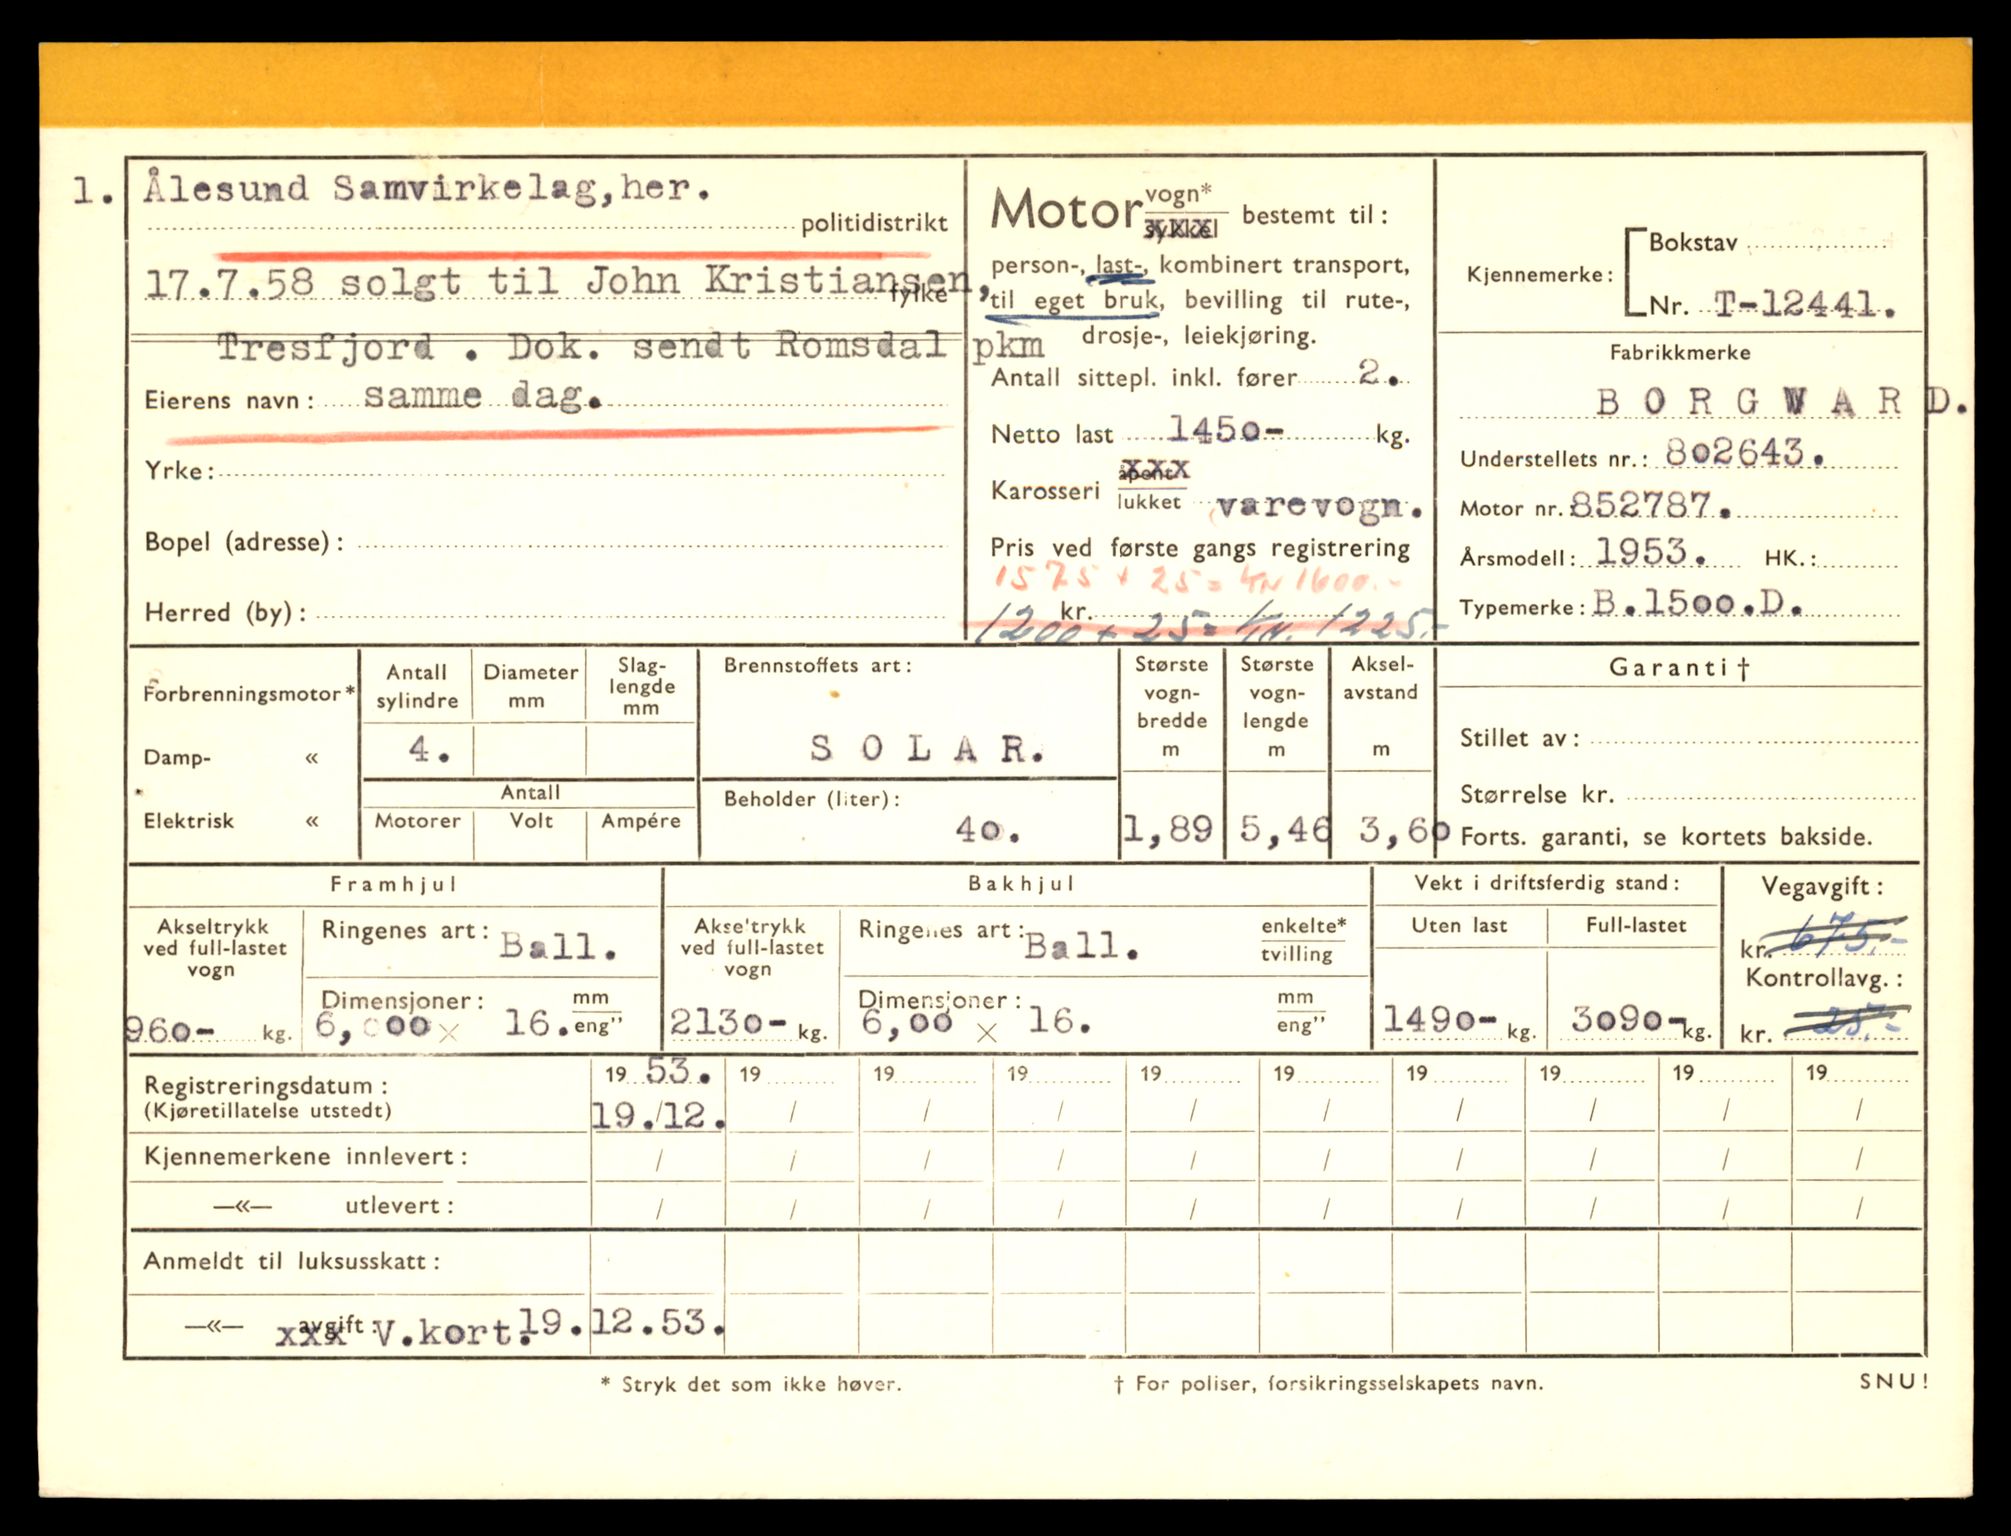 1. Ålesund Samvirkelag, her.
politidistrikt
17.7.58 solgt til John Kristiansen,
fylke
Tresfjord . Dok. sendt Romsdal pkm
Eierens navn: samme dag.
Yrke:
Bopel (adresse):
Herred (by):
Motor vogn* sykkel bestemt til:
person-, last-, kombinert transport,
til eget bruk, bevilling til rute-,
drosje-, leiekjøring.
Antall sittepl. inkl. fører 2.
Netto last 1450- kg.
xxx
Karosseri åpent lukket varevogn.
Pris ved første gangs registrering
1575 + 25 = kr 1600.-
kr.
1200 + 25 = kr. 1225.-
Kjennemerke: Bokstav
Nr. T-12441.
Fabrikkmerke
BORGWARD.
Understellets nr.: 802643.
Motor nr. 852787.
Årsmodell: 1953. HK.:
Typemerke: B.1500.D.
Forbrenningsmotor*
Damp- «
Elektrisk «
Antall sylindre
Diameter mm
Slag-lengde mm
4.
Antall
Motorer Volt Ampére
Brennstoffets art:
SOLAR.
Beholder (liter):
40.
Største vogn-bredde m
1,89
Største vogn-lengde m
5,46
Aksel-avstand m
3,60
Garanti †
Stillet av:
Størrelse kr.
Forts. garanti, se kortets bakside.
Framhjul
Akseltrykk ved full-lastet vogn
960- kg.
Ringenes art: Ball.
Dimensjoner: mm
6,000 x 16. eng"
Bakhjul
Akseltrykk ved full-lastet vogn
2130- kg.
Ringenes art: Ball. enkelte* tvilling
Dimensjoner: mm
6,00 x 16. eng"
Vekt i driftsferdig stand:
Uten last Full-lastet
1490- kg. 3090- kg.
Vegavgift:
kr. 675.-
Kontrollavg.:
kr. 25.-
Registreringsdatum: 19 53. 19 19 19 19 19 19 19 19 19
(Kjøretillatelse utstedt) 19./12. / / / / / / / / /
Kjennemerkene innlevert: / / / / / / / / / /
—«— utlevert: / / / / / / / / / /
Anmeldt til luksusskatt:
—«— avgift: xxx V.kort. 19.12.53.
* Stryk det som ikke høver. † For poliser, forsikringsselskapets navn. SNU!